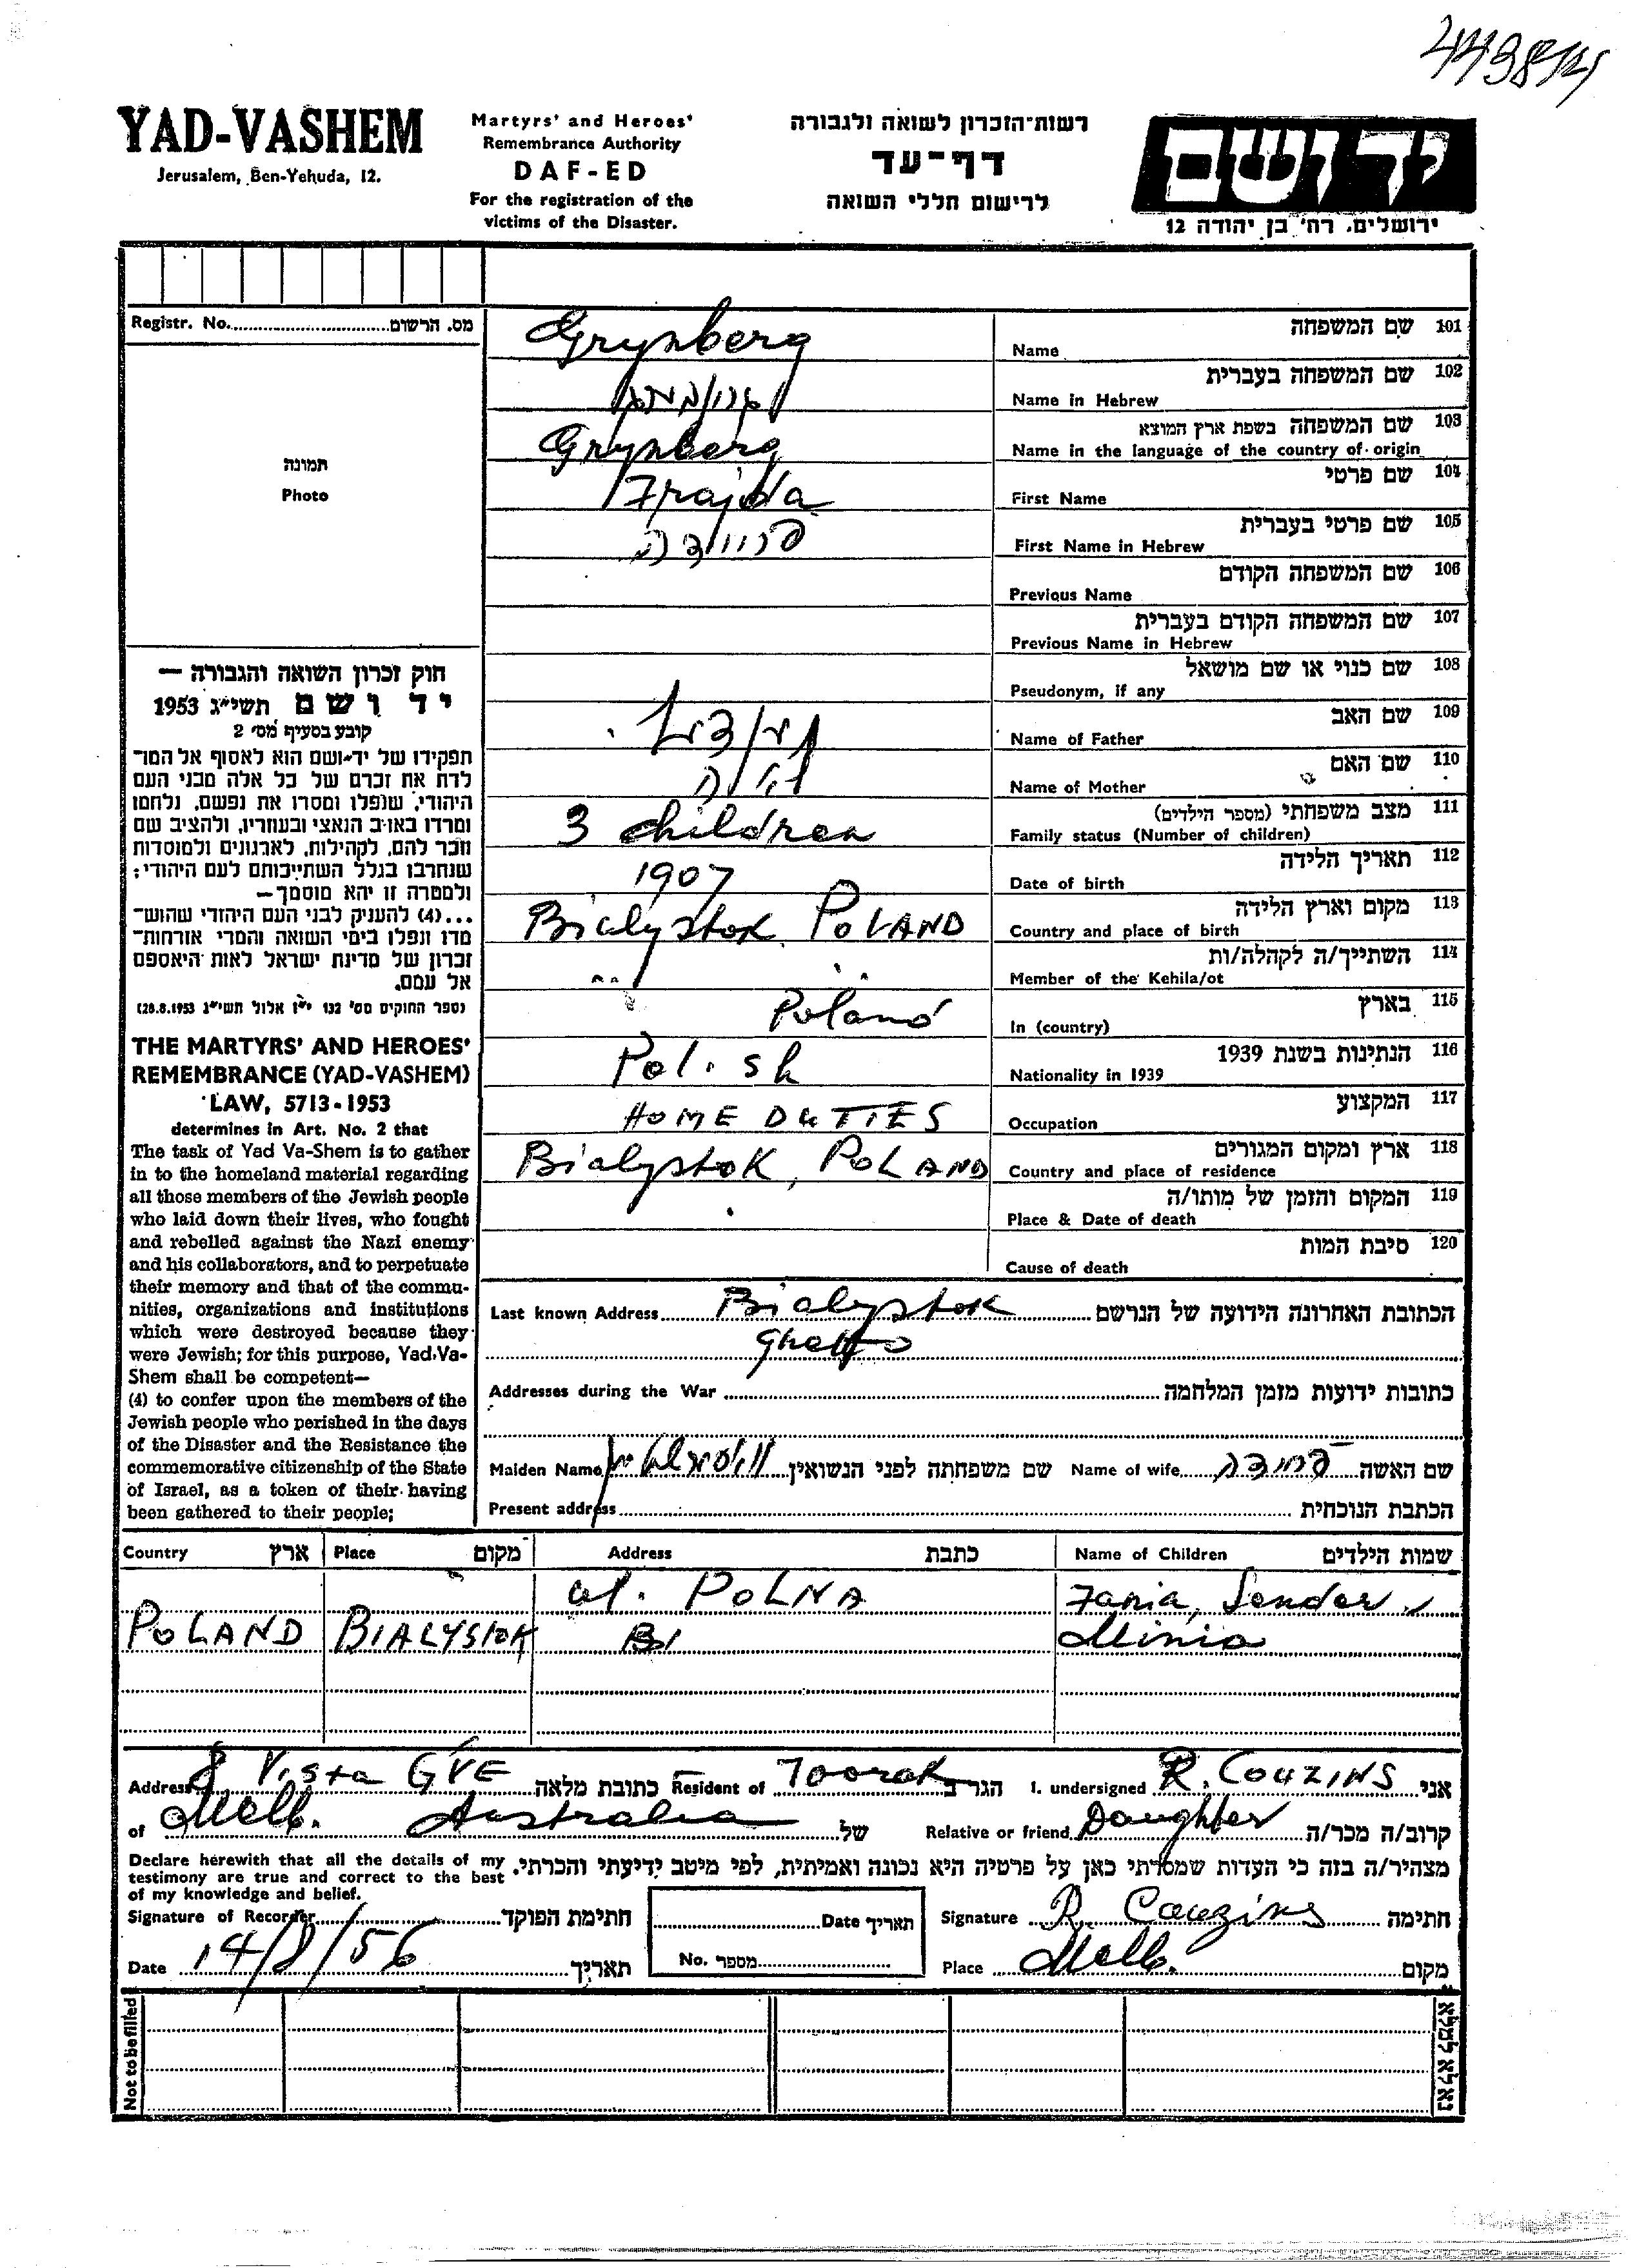 YAD-VASHEM
Jerusalem, Ben-Yehuda, 12.
Martyrs' and Heroes'
Remembrance Authority
DAF-ED
For the registration of the
victims of the Disaster.
רשות־הזכרון לשואה ולגבורה
דף־עד
לרישום חללי השואה
ידושם
ירושלים, רח' בן יהודה 12
Registr. No. מס. הרשום
תמונה
Photo
Grynberg
Name שם המשפחה 101
Name in Hebrew שם המשפחה בעברית 102
Grynberg
Name in the language of the country of origin שם המשפחה בשפת ארץ המוצא 103
Frajda
First Name שם פרטי 104
פריידה
First Name in Hebrew שם פרטי בעברית 105
Previous Name שם המשפחה הקודם 106
Previous Name in Hebrew שם המשפחה הקודם בעברית 107
Pseudonym, if any שם כנוי או שם מושאל 108
Name of Father שם האב 109
Name of Mother שם האם 110
3 children
Family status (Number of children) מצב משפחתי (מספר הילדים) 111
1907
Date of birth תאריך הלידה 112
Bialystok POLAND
Country and place of birth מקום וארץ הלידה 113
" "
Member of the Kehila/ot השתייך/ה לקהלה/ות 114
Poland
In (country) בארץ 115
Polish
Nationality in 1939 הנתינות בשנת 1939 116
HOME DUTIES
Occupation המקצוע 117
Bialystok, POLAND
Country and place of residence ארץ ומקום המגורים 118
Place & Date of death המקום והזמן של מותו/ה 119
Cause of death סיבת המות 120
חוק זכרון השואה והגבורה —
יד ושם תשי"ג 1953
קובע בסעיף מס' 2
תפקידו של יד־ושם הוא לאסוף אל המו־
לדת את זכרם של כל אלה מבני העם
היהודי, שנפלו ומסרו את נפשם, נלחמו
ומרדו באויב הנאצי ובעוזריו, ולהציב שם
וזכר להם, לקהילות, לארגונים ולמוסדות
שנחרבו בגלל השתייכותם לעם היהודי;
ולמטרה זו יהא מוסמך —
...(4) להעניק לבני העם היהודי שהוש־
מדו ונפלו בימי השואה והמרי אזרחות־
זכרון של מדינת ישראל לאות היאספם
אל עמם.
(ספר החוקים מס' 132 י"ז אלול תשי"ג 28.8.1953)
THE MARTYRS' AND HEROES'
REMEMBRANCE (YAD-VASHEM)
LAW, 5713-1953
determines in Art. No. 2 that
The task of Yad Va-Shem is to gather
in to the homeland material regarding
all those members of the Jewish people
who laid down their lives, who fought
and rebelled against the Nazi enemy
and his collaborators, and to perpetuate
their memory and that of the commu-
nities, organizations and institutions
which were destroyed because they
were Jewish; for this purpose, Yad-Va-
Shem shall be competent—
(4) to confer upon the members of the
Jewish people who perished in the days
of the Disaster and the Resistance the
commemorative citizenship of the State
of Israel, as a token of their having
been gathered to their people;
Last known Address Bialystok הכתובת האחרונה הידועה של הנרשם
Ghetto
Addresses during the War כתובות ידועות מזמן המלחמה
Maiden Name שם משפחתה לפני הנשואין Name of wife פריידה שם האשה
Present address הכתבת הנוכחית
Country ארץ Place מקום Address כתבת Name of Children שמות הילדים
ul. POLNA Fania, Sender,
POLAND BIALYSTOK Minia
Address 8 Vista GVE כתובת מלאה Resident of Toorak הגר ב I. undersigned R. COUZINS אני
of Melb. Australia של Relative or friend Daughter קרוב/ה מכר/ה
Declare herewith that all the details of my
testimony are true and correct to the best
of my knowledge and belief.
מצהיר/ה בזה כי העדות שמסרתי כאן על פרטיה היא נכונה ואמיתית, לפי מיטב ידיעתי והכרתי.
Signature of Recorder חתימת הפוקד Date תאריך Signature R. Couzins חתימה
Date 14/8/56 תאריך No. מספר Place Melb. מקום
Not to be filled
נא לא למלא